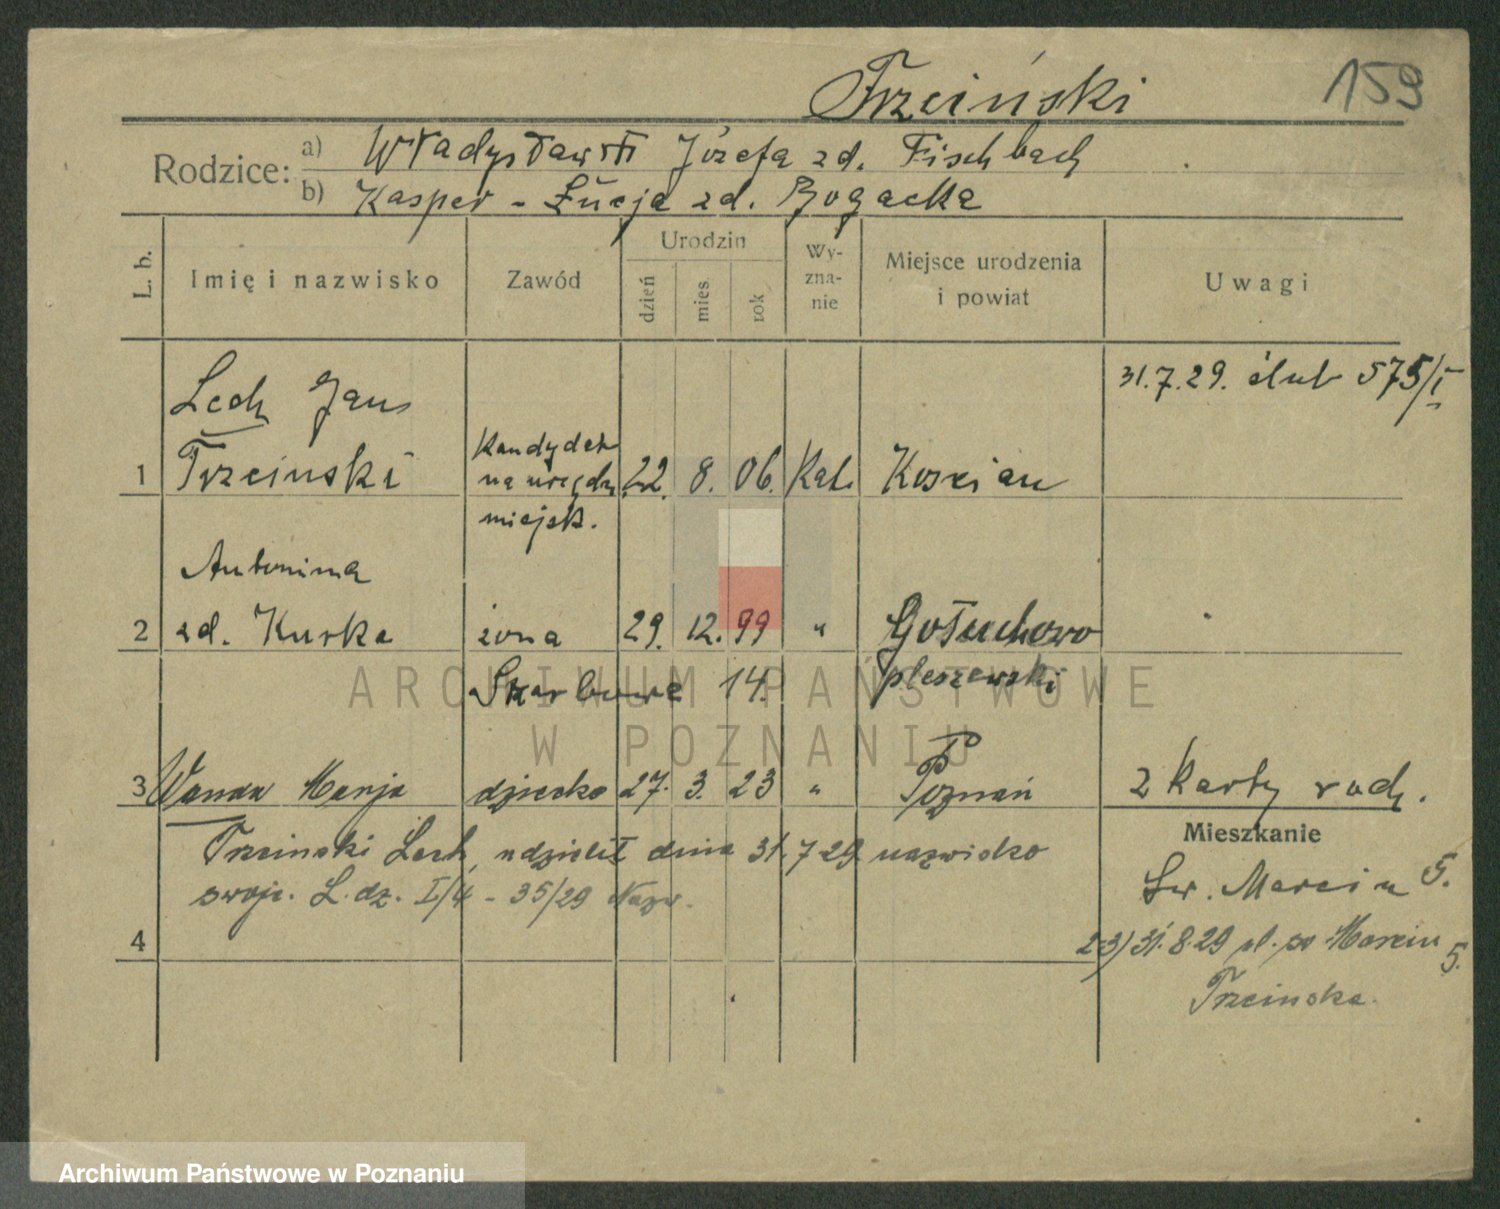 Trzciński 159
Rodzice:
a) Władysław Józefa zd. Fischbach
b) Kasper - Łucja zd. Bogacka
L. b.
Imię i nazwisko
Zawód
Urodzin
dzień
mies.
rok
Wy-
zna-
nie
Miejsce urodzenia
i powiat
Uwagi
31.7.29. ślub 575/I
Lech Jan
1 Trzcinski Kandydat na urzędn. miejsk. 22. 8. 06. Kat. Koscian
Antonina
2 zd. Kurka żona 29. 12. 99 " Gołuchowo
Skarbowa 14. pleszewski
3 Wanda Marja dziecko 27. 3. 23 " Poznań 2 karty rodz.
Trzcinski Lech, udzielił dnia 31.7.29 nazwisko
swoje. L. dz. I/4 - 35/29 Nazw.
4
Mieszkanie
Św. Marcin 5.
2-3) 31.8.29 Marcin 5.
Trzcinska.
ARCHIWUM PAŃSTWOWE
W POZNANIU
Archiwum Państwowe w Poznaniu